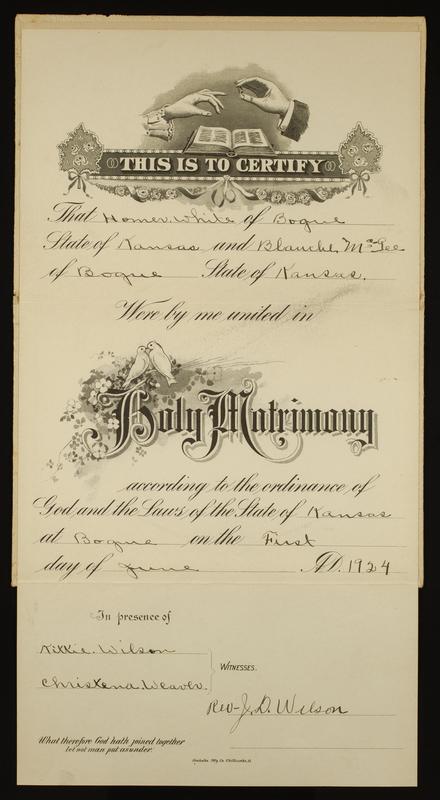 THIS IS TO CERTIFY
That Homer White of Bogue
State of Kansas and Blanche McGee
of Bogue State of Kansas.
Were by me united in
Holy Matrimony
according to the ordinance of
God and the Laws of the State of Kansas
at Bogue on the First
day of June A.D. 1924
In presence of
Nikkie. Wilson
Christena Weaver.
WITNESSES.
Rev- J. D. Wilson
What therefore God hath joined together
let not man put asunder.